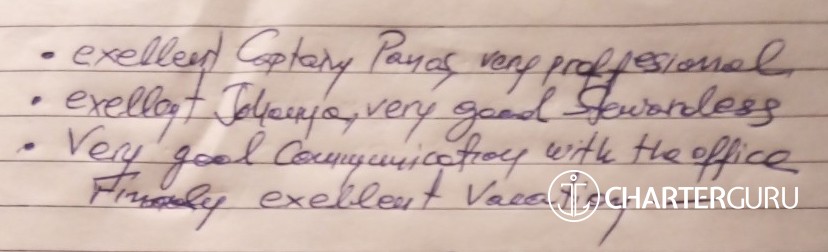 • exellent Captain Panos, very proffesional
• exellent Johanna, very good Stewardess
• Very good Communication with the office
Finaly exellent Vacation
CHARTERGURU